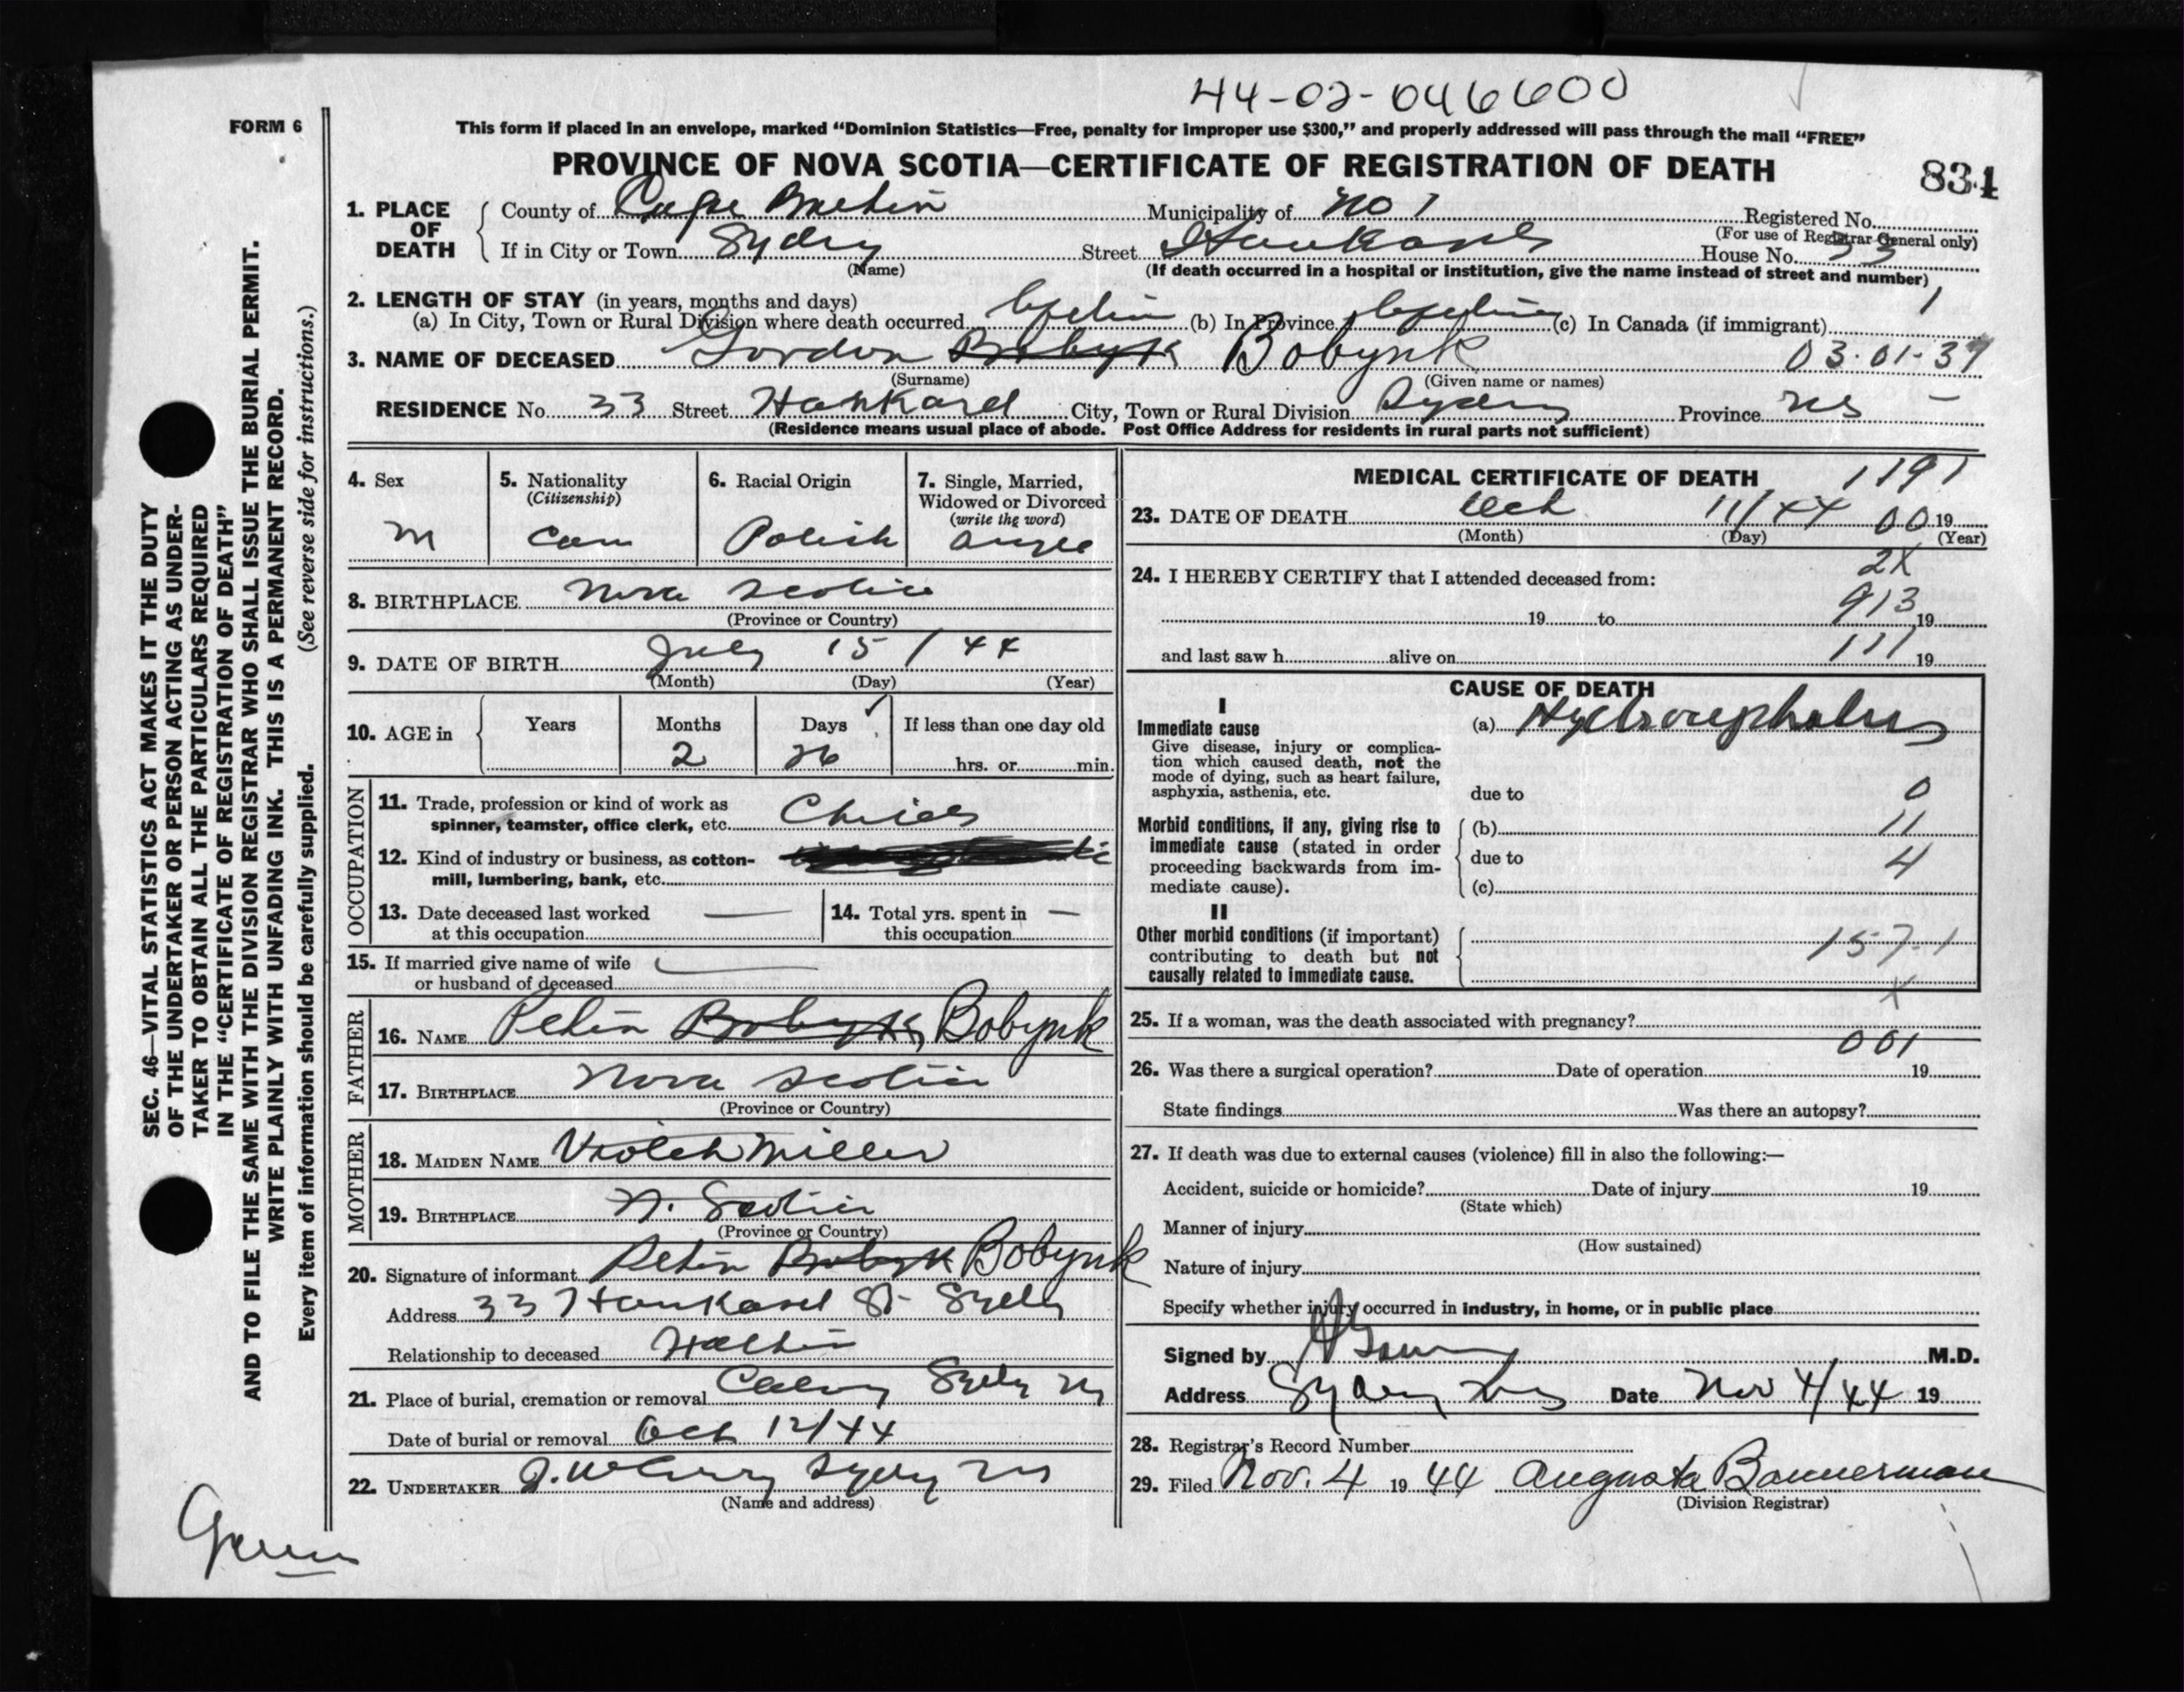 44-02-046600
FORM 6
This form if placed in an envelope, marked “Dominion Statistics—Free, penalty for improper use $300,” and properly addressed will pass through the mail “FREE”
PROVINCE OF NOVA SCOTIA—CERTIFICATE OF REGISTRATION OF DEATH
834
1. PLACE OF DEATH
County of Cape Breton Municipality of No 1 Registered No.
(For use of Registrar General only)
If in City or Town Sydney Street Hankard House No. 33
(Name)
(If death occurred in a hospital or institution, give the name instead of street and number)
2. LENGTH OF STAY (in years, months and days) 1
(a) In City, Town or Rural Division where death occurred Lifetime (b) In Province Lifetime (c) In Canada (if immigrant)
3. NAME OF DECEASED Gordon Bobyk Bobynk 03-01-37
(Surname) (Given name or names)
RESIDENCE No 33 Street Hankard City, Town or Rural Division Sydney Province NS –
(Residence means usual place of abode. Post Office Address for residents in rural parts not sufficient)
4. Sex
M
5. Nationality
(Citizenship)
Can
6. Racial Origin
Polish
7. Single, Married, Widowed or Divorced
(write the word)
Single
8. BIRTHPLACE Nova Scotia
(Province or Country)
9. DATE OF BIRTH July 15 / 44
(Month) (Day) (Year)
10. AGE in Years Months Days If less than one day old
2 26 hrs. or min.
OCCUPATION
11. Trade, profession or kind of work as
spinner, teamster, office clerk, etc. Child
12. Kind of industry or business, as cotton-
mill, lumbering, bank, etc.
13. Date deceased last worked —
at this occupation
14. Total yrs. spent in —
this occupation
15. If married give name of wife —
or husband of deceased
FATHER
16. NAME Peter Bobyk Bobynk
17. BIRTHPLACE Nova Scotia
(Province or Country)
MOTHER
18. MAIDEN NAME Violet Miller
19. BIRTHPLACE N. Scotia
(Province or Country)
20. Signature of informant Peter Bobyk Bobynk
Address 33 Hankard St Sydney
Relationship to deceased Father
21. Place of burial, cremation or removal Calvary Sydney NS
Date of burial or removal Oct 12/44
22. UNDERTAKER Sydney NS
(Name and address)
MEDICAL CERTIFICATE OF DEATH 1191
23. DATE OF DEATH Oct 11/44 00 19
(Month) (Day) (Year)
2X
24. I HEREBY CERTIFY that I attended deceased from:
913
19 to 19
and last saw h alive on 111 19
CAUSE OF DEATH
I
Immediate cause (a) Hydrocephalus
Give disease, injury or complica-
tion which caused death, not the
mode of dying, such as heart failure,
asphyxia, asthenia, etc.
due to 0
Morbid conditions, if any, giving rise to
immediate cause (stated in order
proceeding backwards from im-
mediate cause).
(b) 11
due to 4
(c)
II
Other morbid conditions (if important)
contributing to death but not
causally related to immediate cause.
157-1
X
25. If a woman, was the death associated with pregnancy?
001
26. Was there a surgical operation? Date of operation 19
State findings Was there an autopsy?
27. If death was due to external causes (violence) fill in also the following:—
Accident, suicide or homicide? Date of injury 19
(State which)
Manner of injury
(How sustained)
Nature of injury
Specify whether injury occurred in industry, in home, or in public place
Signed by M.D.
Address Sydney NS Date Nov 4/44 19
28. Registrar's Record Number
29. Filed Nov. 4 19 44 Augusta Bannerman
(Division Registrar)
SEC. 46—VITAL STATISTICS ACT MAKES IT THE DUTY
OF THE UNDERTAKER OR PERSON ACTING AS UNDER-
TAKER TO OBTAIN ALL THE PARTICULARS REQUIRED
IN THE “CERTIFICATE OF REGISTRATION OF DEATH”
AND TO FILE THE SAME WITH THE DIVISION REGISTRAR WHO SHALL ISSUE THE BURIAL PERMIT.
WRITE PLAINLY WITH UNFADING INK. THIS IS A PERMANENT RECORD.
Every item of information should be carefully supplied. (See reverse side for instructions.)